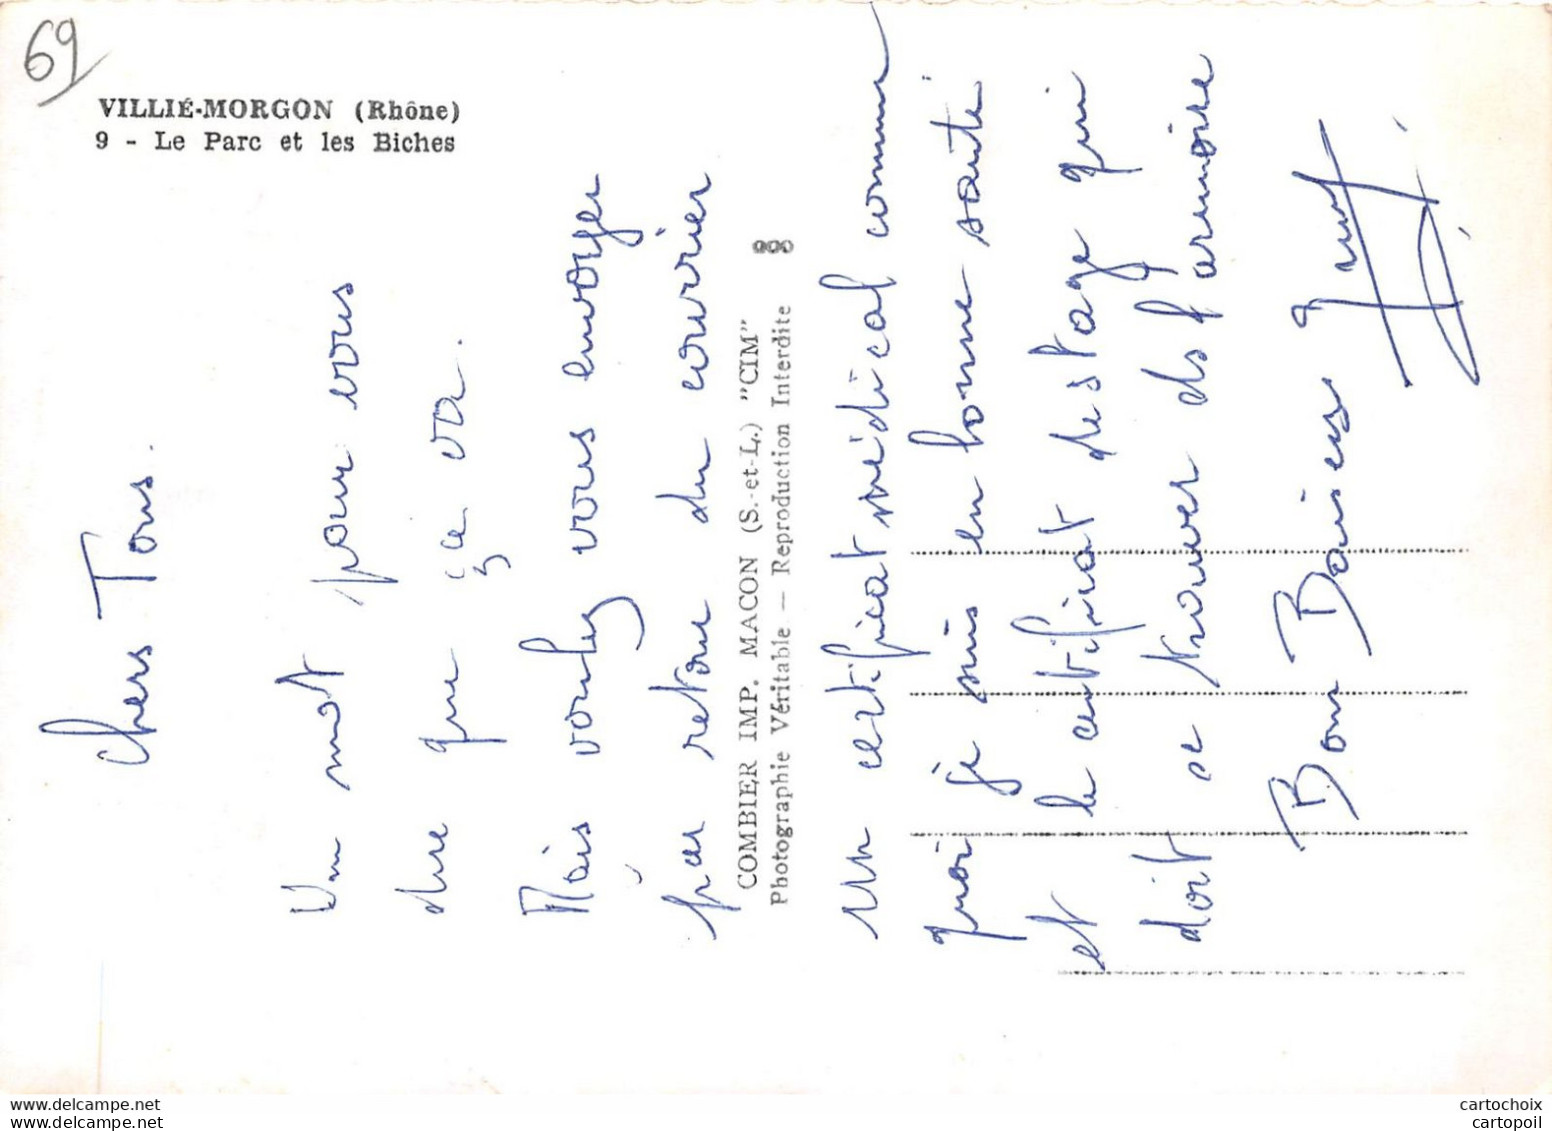 69
VILLIÉ-MORGON (Rhône)
9 - Le Parc et les Biches
Chers Tous.
Un mot pour vous
dire que ça va.
Mais voulez vous envoyer
par retour du courrier
COMBIER IMP. MACON (S.-et-L.) "CIM"
Photographie Véritable — Reproduction Interdite
un certificat médical comme
quoi je suis en bonne santé
et le certificat de stage qui
doit se trouver ds l'armoire
Bon Baisers
delcampe.net
cartochoix
cartopoil